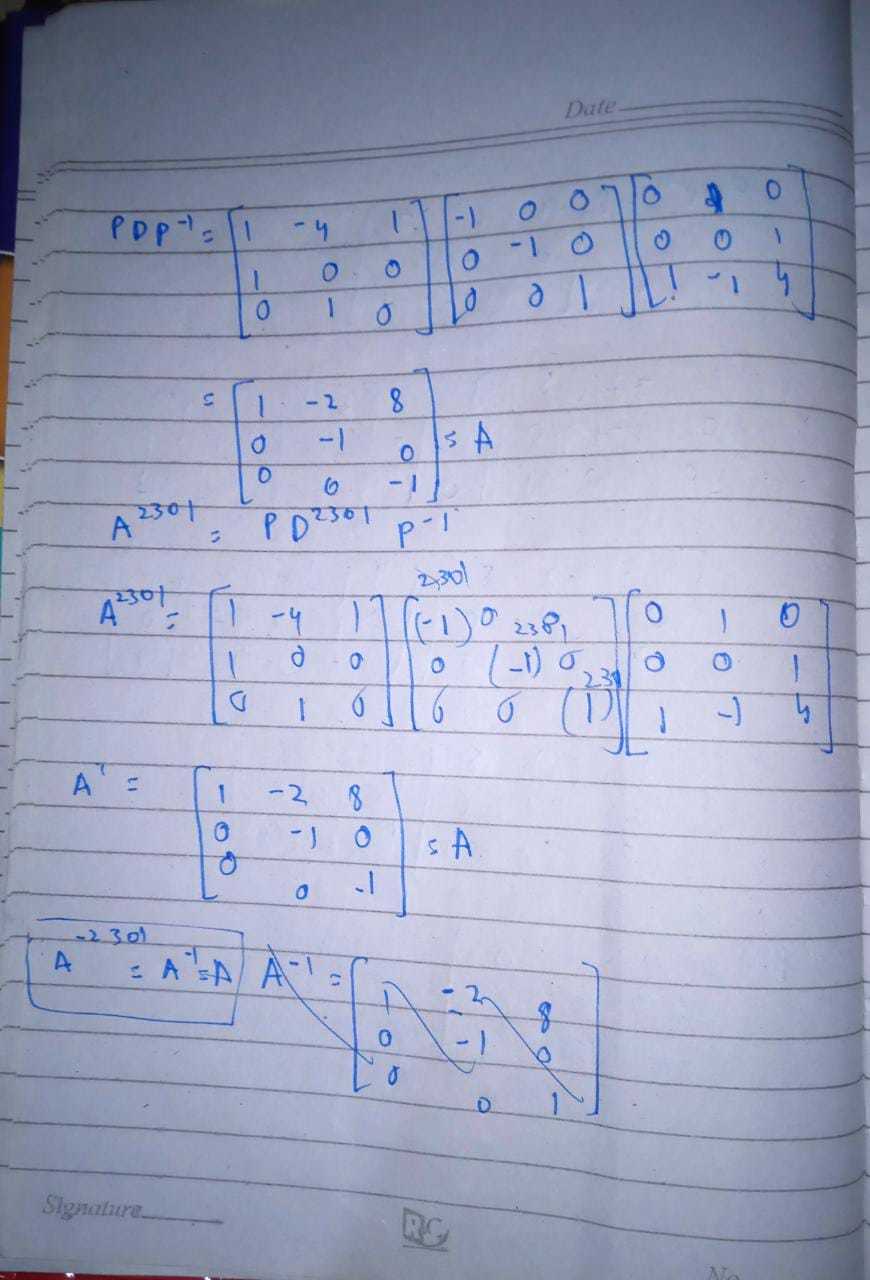 Date
PDP⁻¹ = [1 -4 1] [-1 0 0] [0 1 0]
[1 0 0] [0 -1 0] [0 0 1]
[0 1 0] [0 0 1] [1 -1 4]
= [1 -2 8]
[0 -1 0] = A
[0 0 -1]
A²³⁰¹ = P D²³⁰¹ P⁻¹
2301
A²³⁰¹ = [1 -4 1] [(-1) 0 ] [0 1 0]
[1 0 0] [0 (-1) 0] [0 0 1]
[0 1 0] [0 0 (1)] [1 -1 4]
A' = [1 -2 8]
[0 -1 0] = A
[0 0 -1]
A⁻²³⁰¹ = A⁻¹ = A A⁻¹ = [1 -2 8]
[0 -1 0]
[0 0 1]
Signature
RC
No